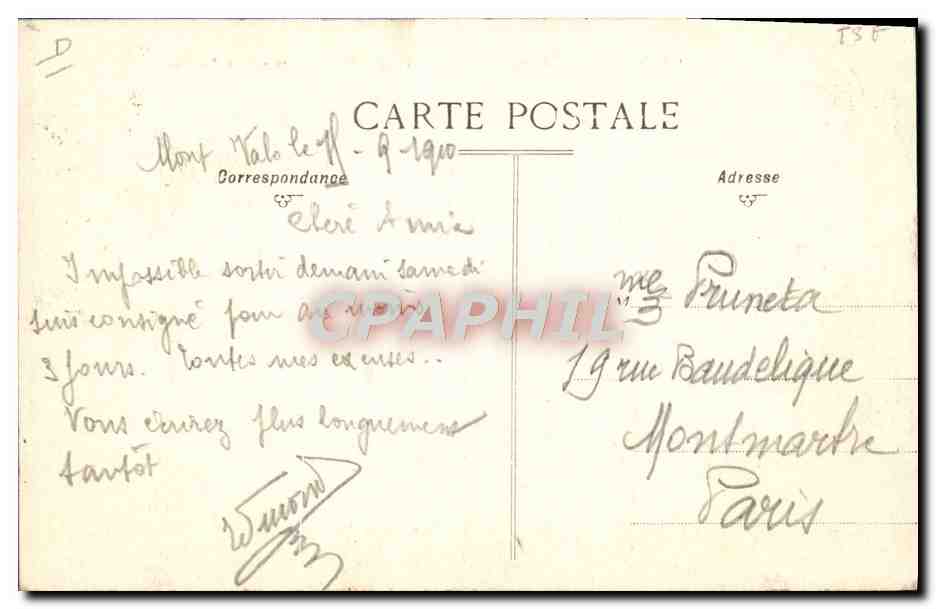 D
TSF
CARTE POSTALE
Mont Val le - 9 - 1910
Correspondance
Adresse
Chere Amie
Impossible sortir demani samedi
suis consigné pour au moins
3 jours. Toutes mes excuses..
Vous ecrirez plus longuement
tantôt
Me Pruneta
19 rue Baudelique
Montmartre
Paris
CPAPHIL